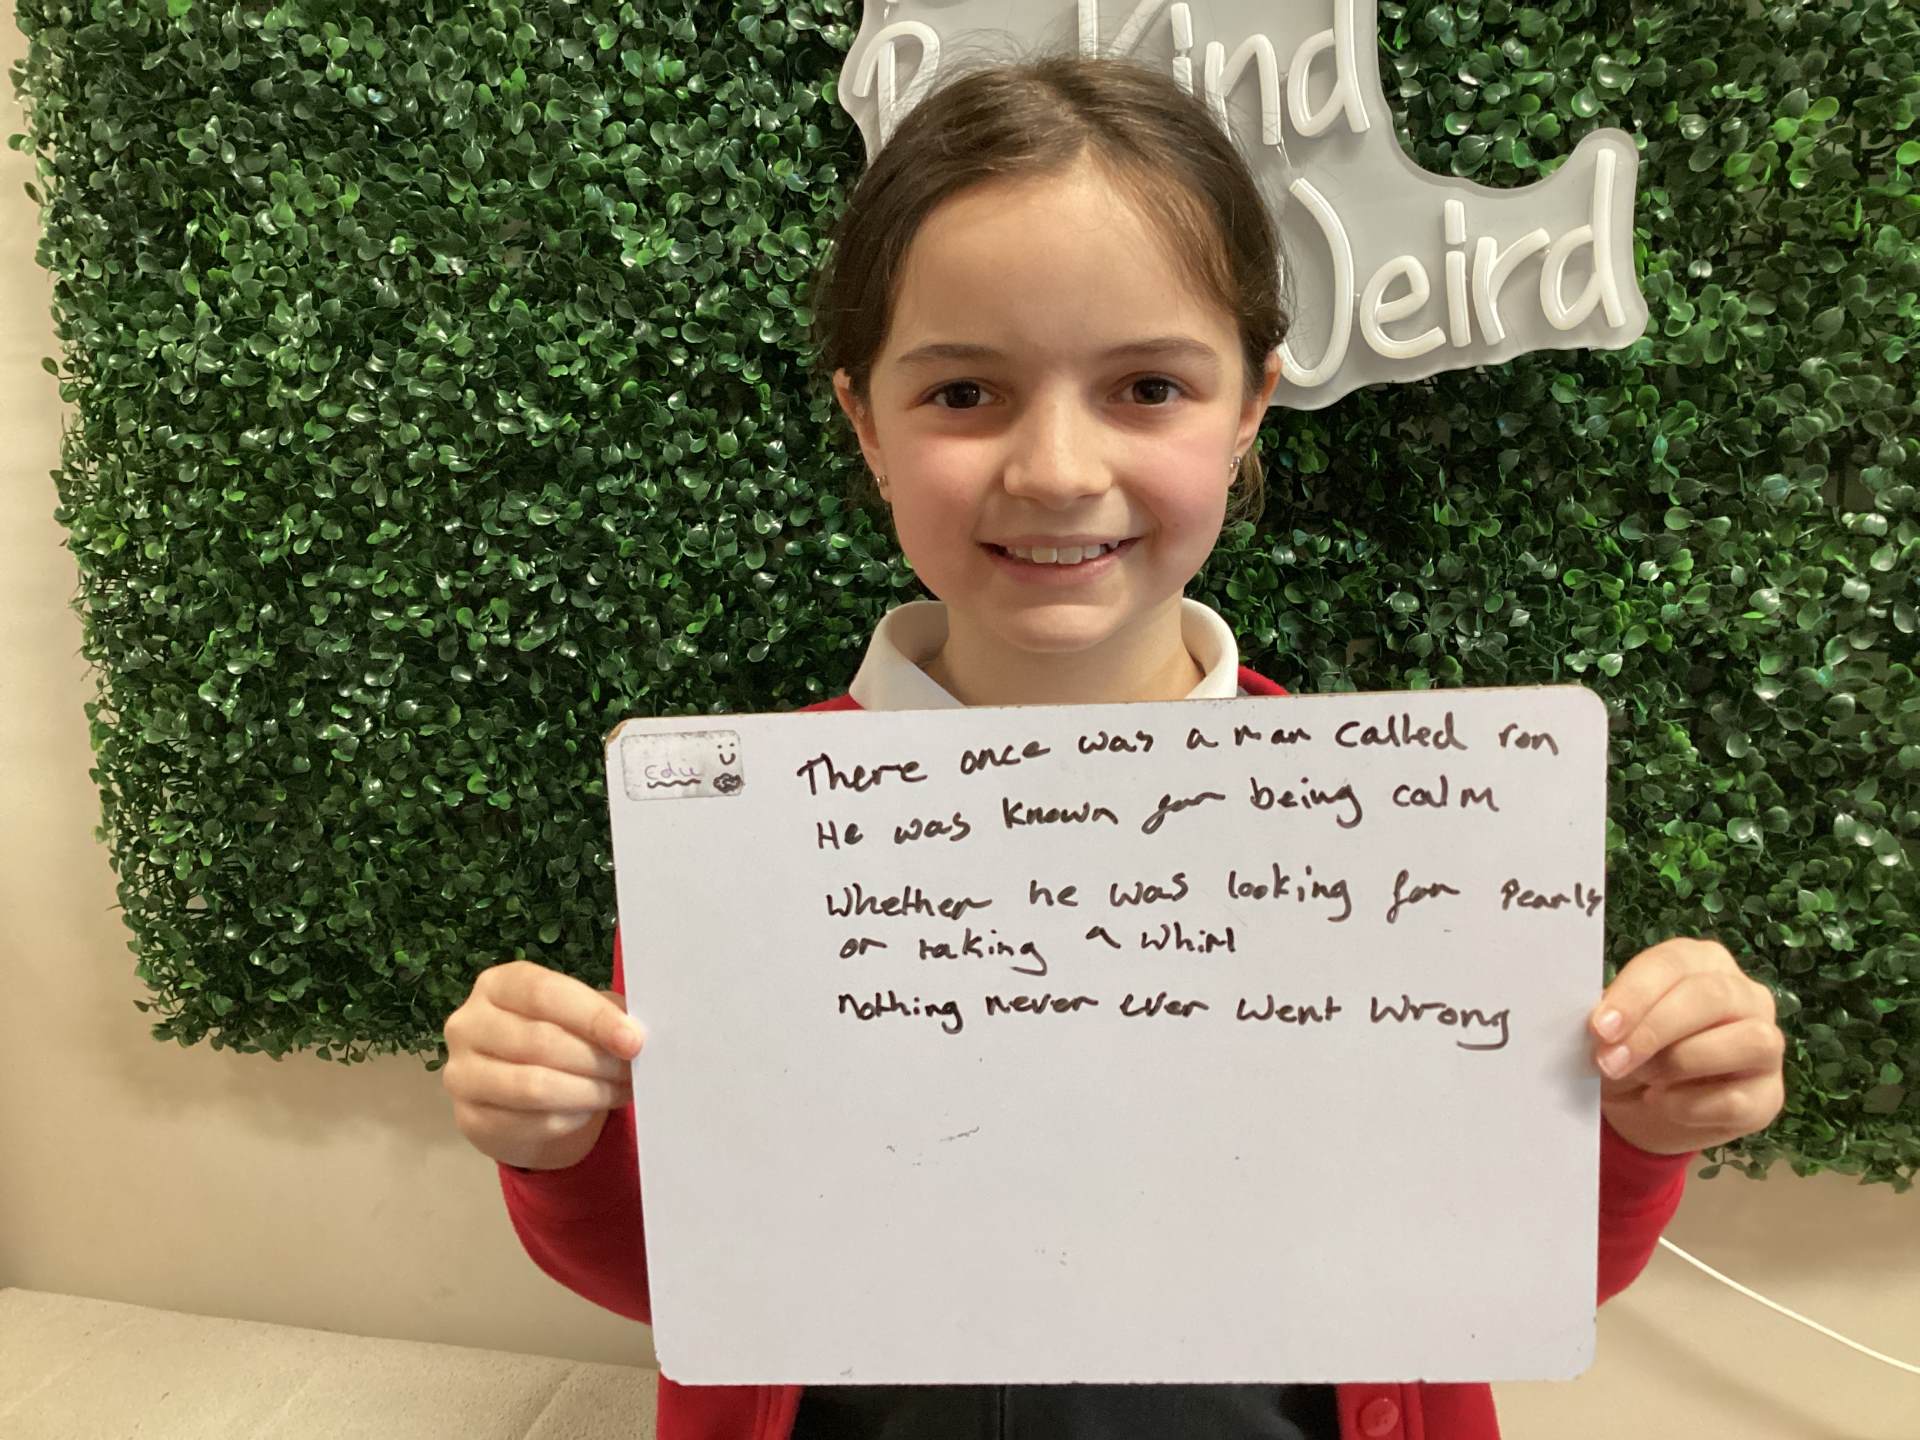 Be Kind
Weird
Edie
There once was a man called ron
He was known for being calm
Whether he was looking for Pearls
or taking a whirl
nothing never ever went wrong